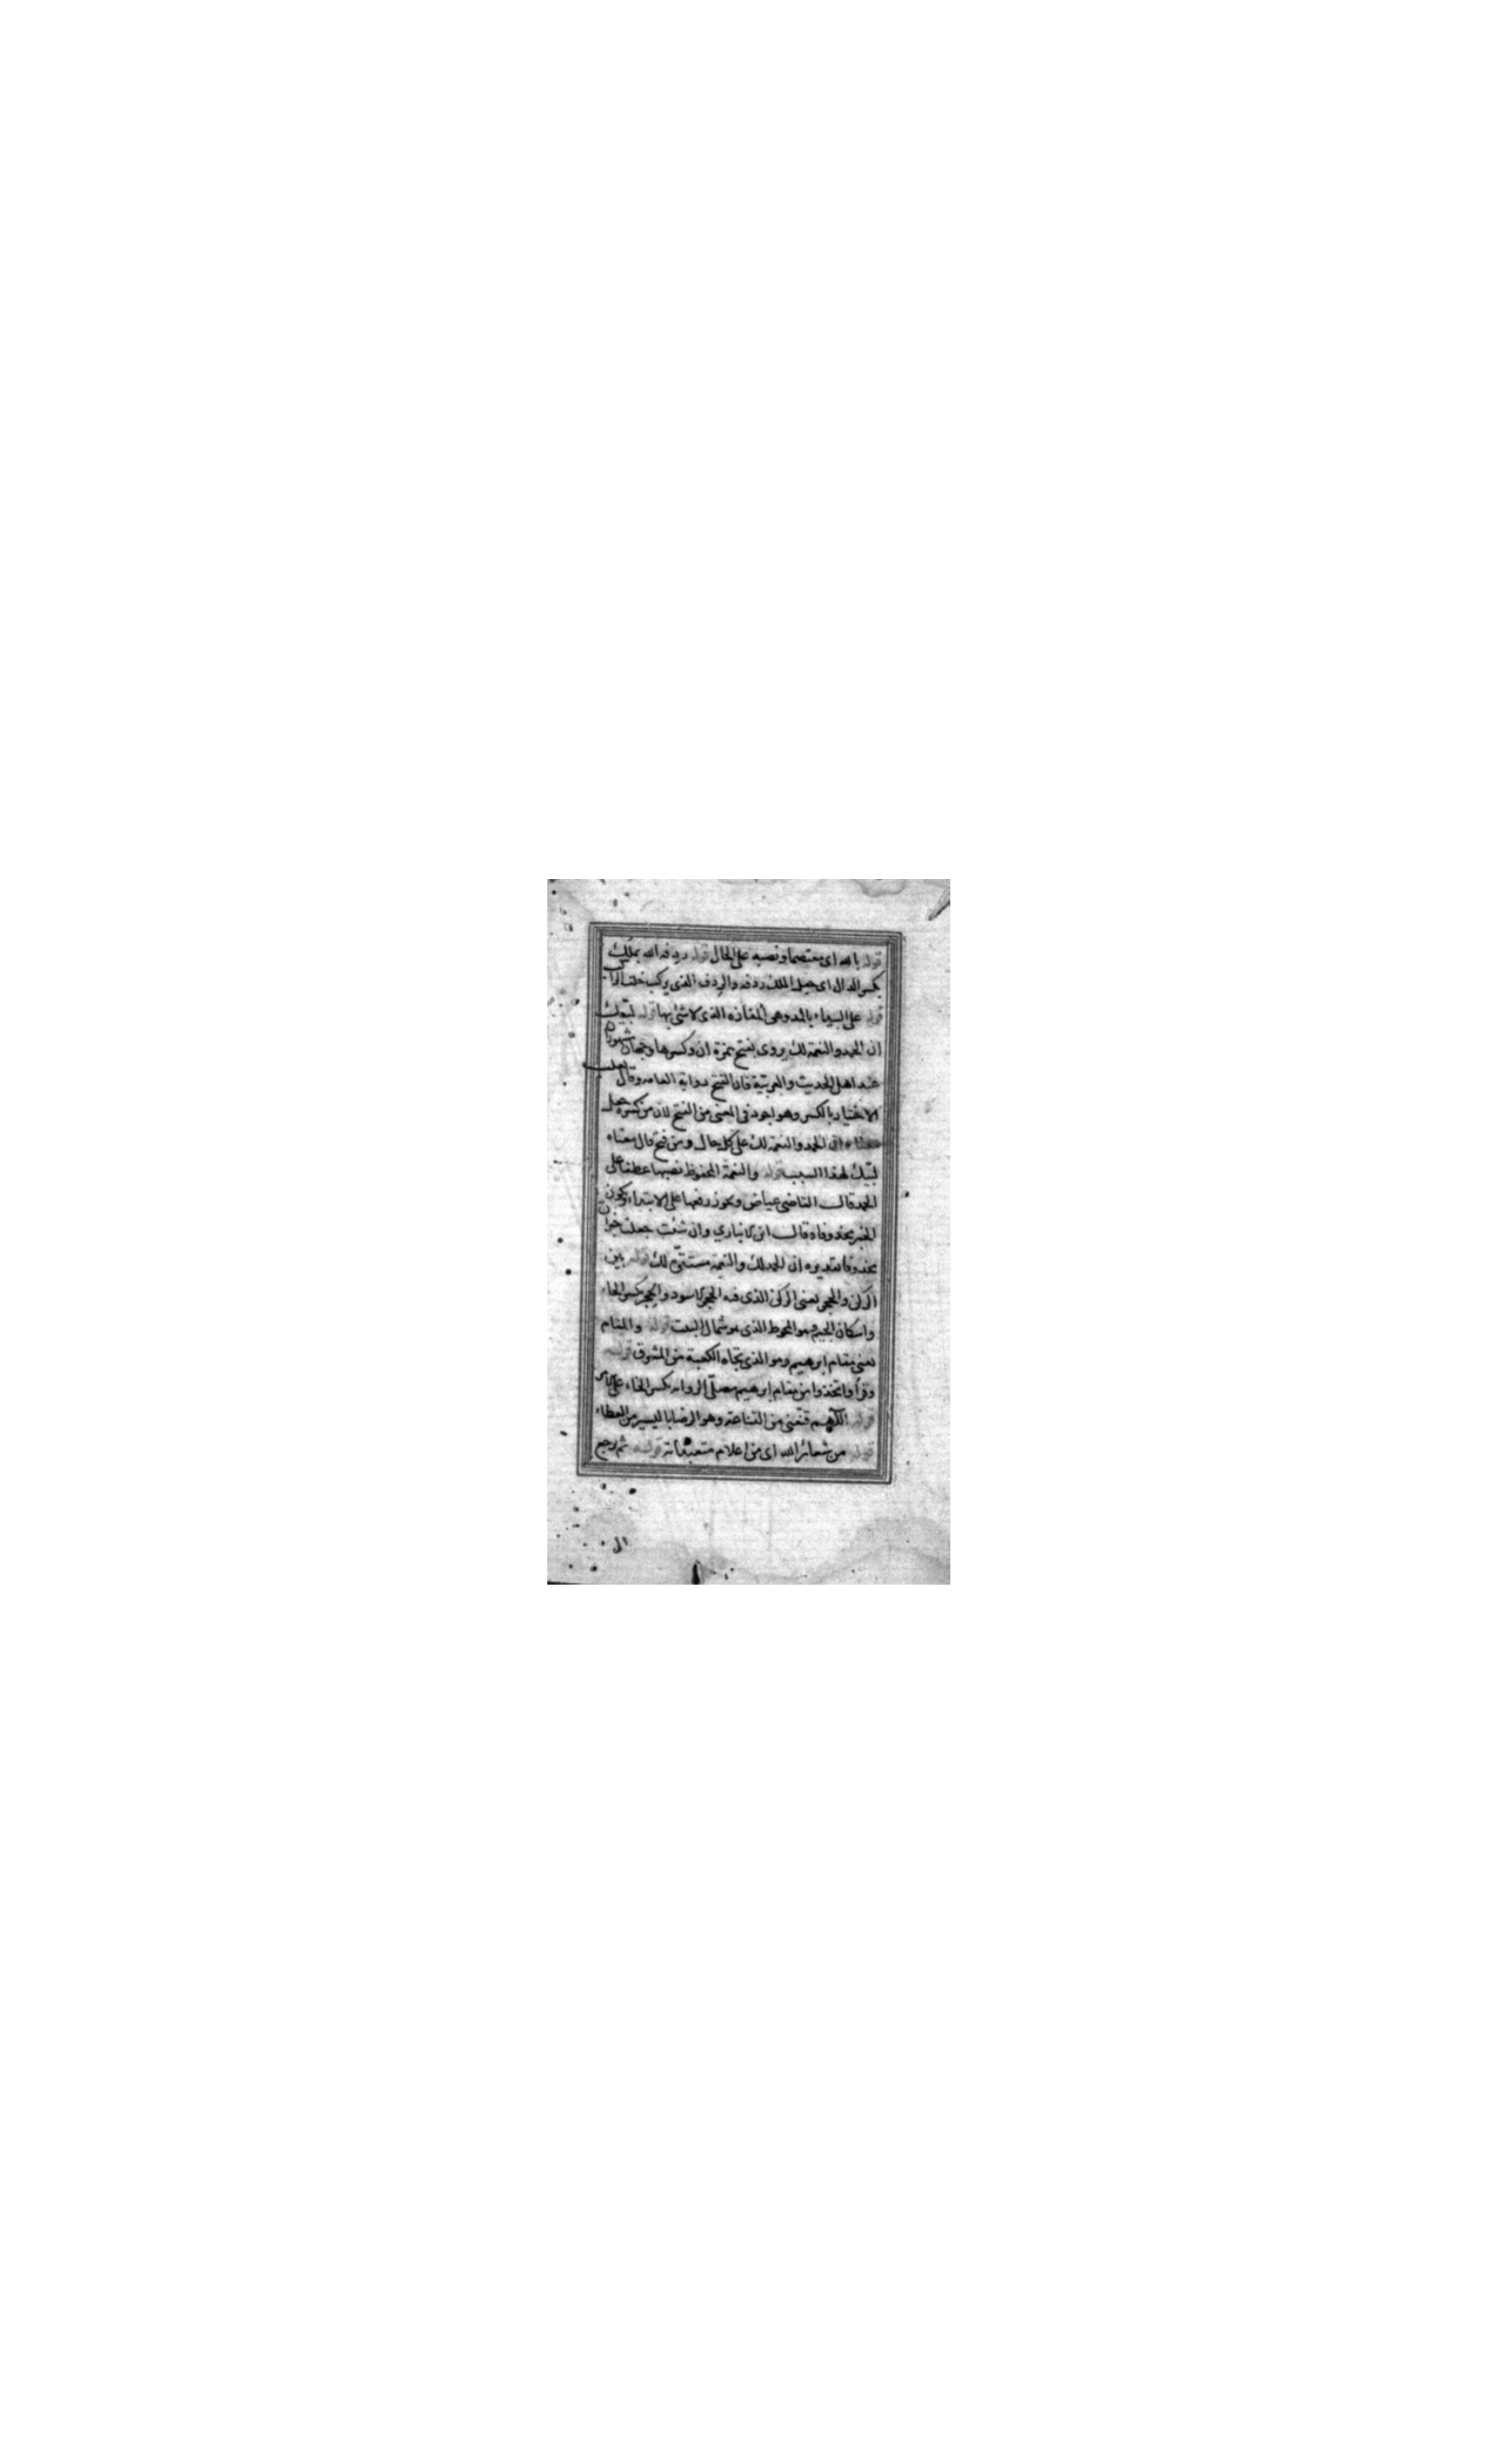 قوله بالله اى معتصما ونصبه على الحال قوله ردفه الله بملك
بكسر الدال اى جعل الملك ردفه والردف الذى يركب خلف الراكب
قوله على البيداء بالمد وهى المفازه الذى لا شئ بها قوله لبيك
ان الحمد والنعمة لك يروى بفتح همزة ان وكسرها وجهان مشهوران
عند اهل الحديث والعربية فان الفتح رواية العامه وقال ثعلب
الاختيار بالكسر وهو اجود فى المعنى من الفتح لان من كسره جعل
معناه ان الحمد والنعمة لك على كل حال ومن فتح قال معناه
لبيك لهذا السبب قوله والنعمة المحفوظ نصبها عطفا على
الحمد قال القاضى عياض ويجوز رفعها على الابتداء ويكون
الخبر محذوفا وقال ابن الانباري وان شئت جعلت خبر ان
محذوفا تقديره ان الحمد لك والنعمة مستقرة لك قوله بين
الركن والحجر يعنى الركن الذى فيه الحجر الاسود والحجر بكسر الحاء
واسكان الجيم وهو المحوط الذى هو شمال البيت قوله والمقام
يعنى مقام ابرهيم وهو الذى تجاه الكعبة من المشرق قوله
وقرأ واتخذوا من مقام ابرهيم مصلى الروايه بكسر الخاء على الامر
قوله اللهم قنعنى من القناعة وهو الرضا باليسير من العطاء
قوله من شعائر الله اى من اعلام متعبداته قوله ثم رجع
الى